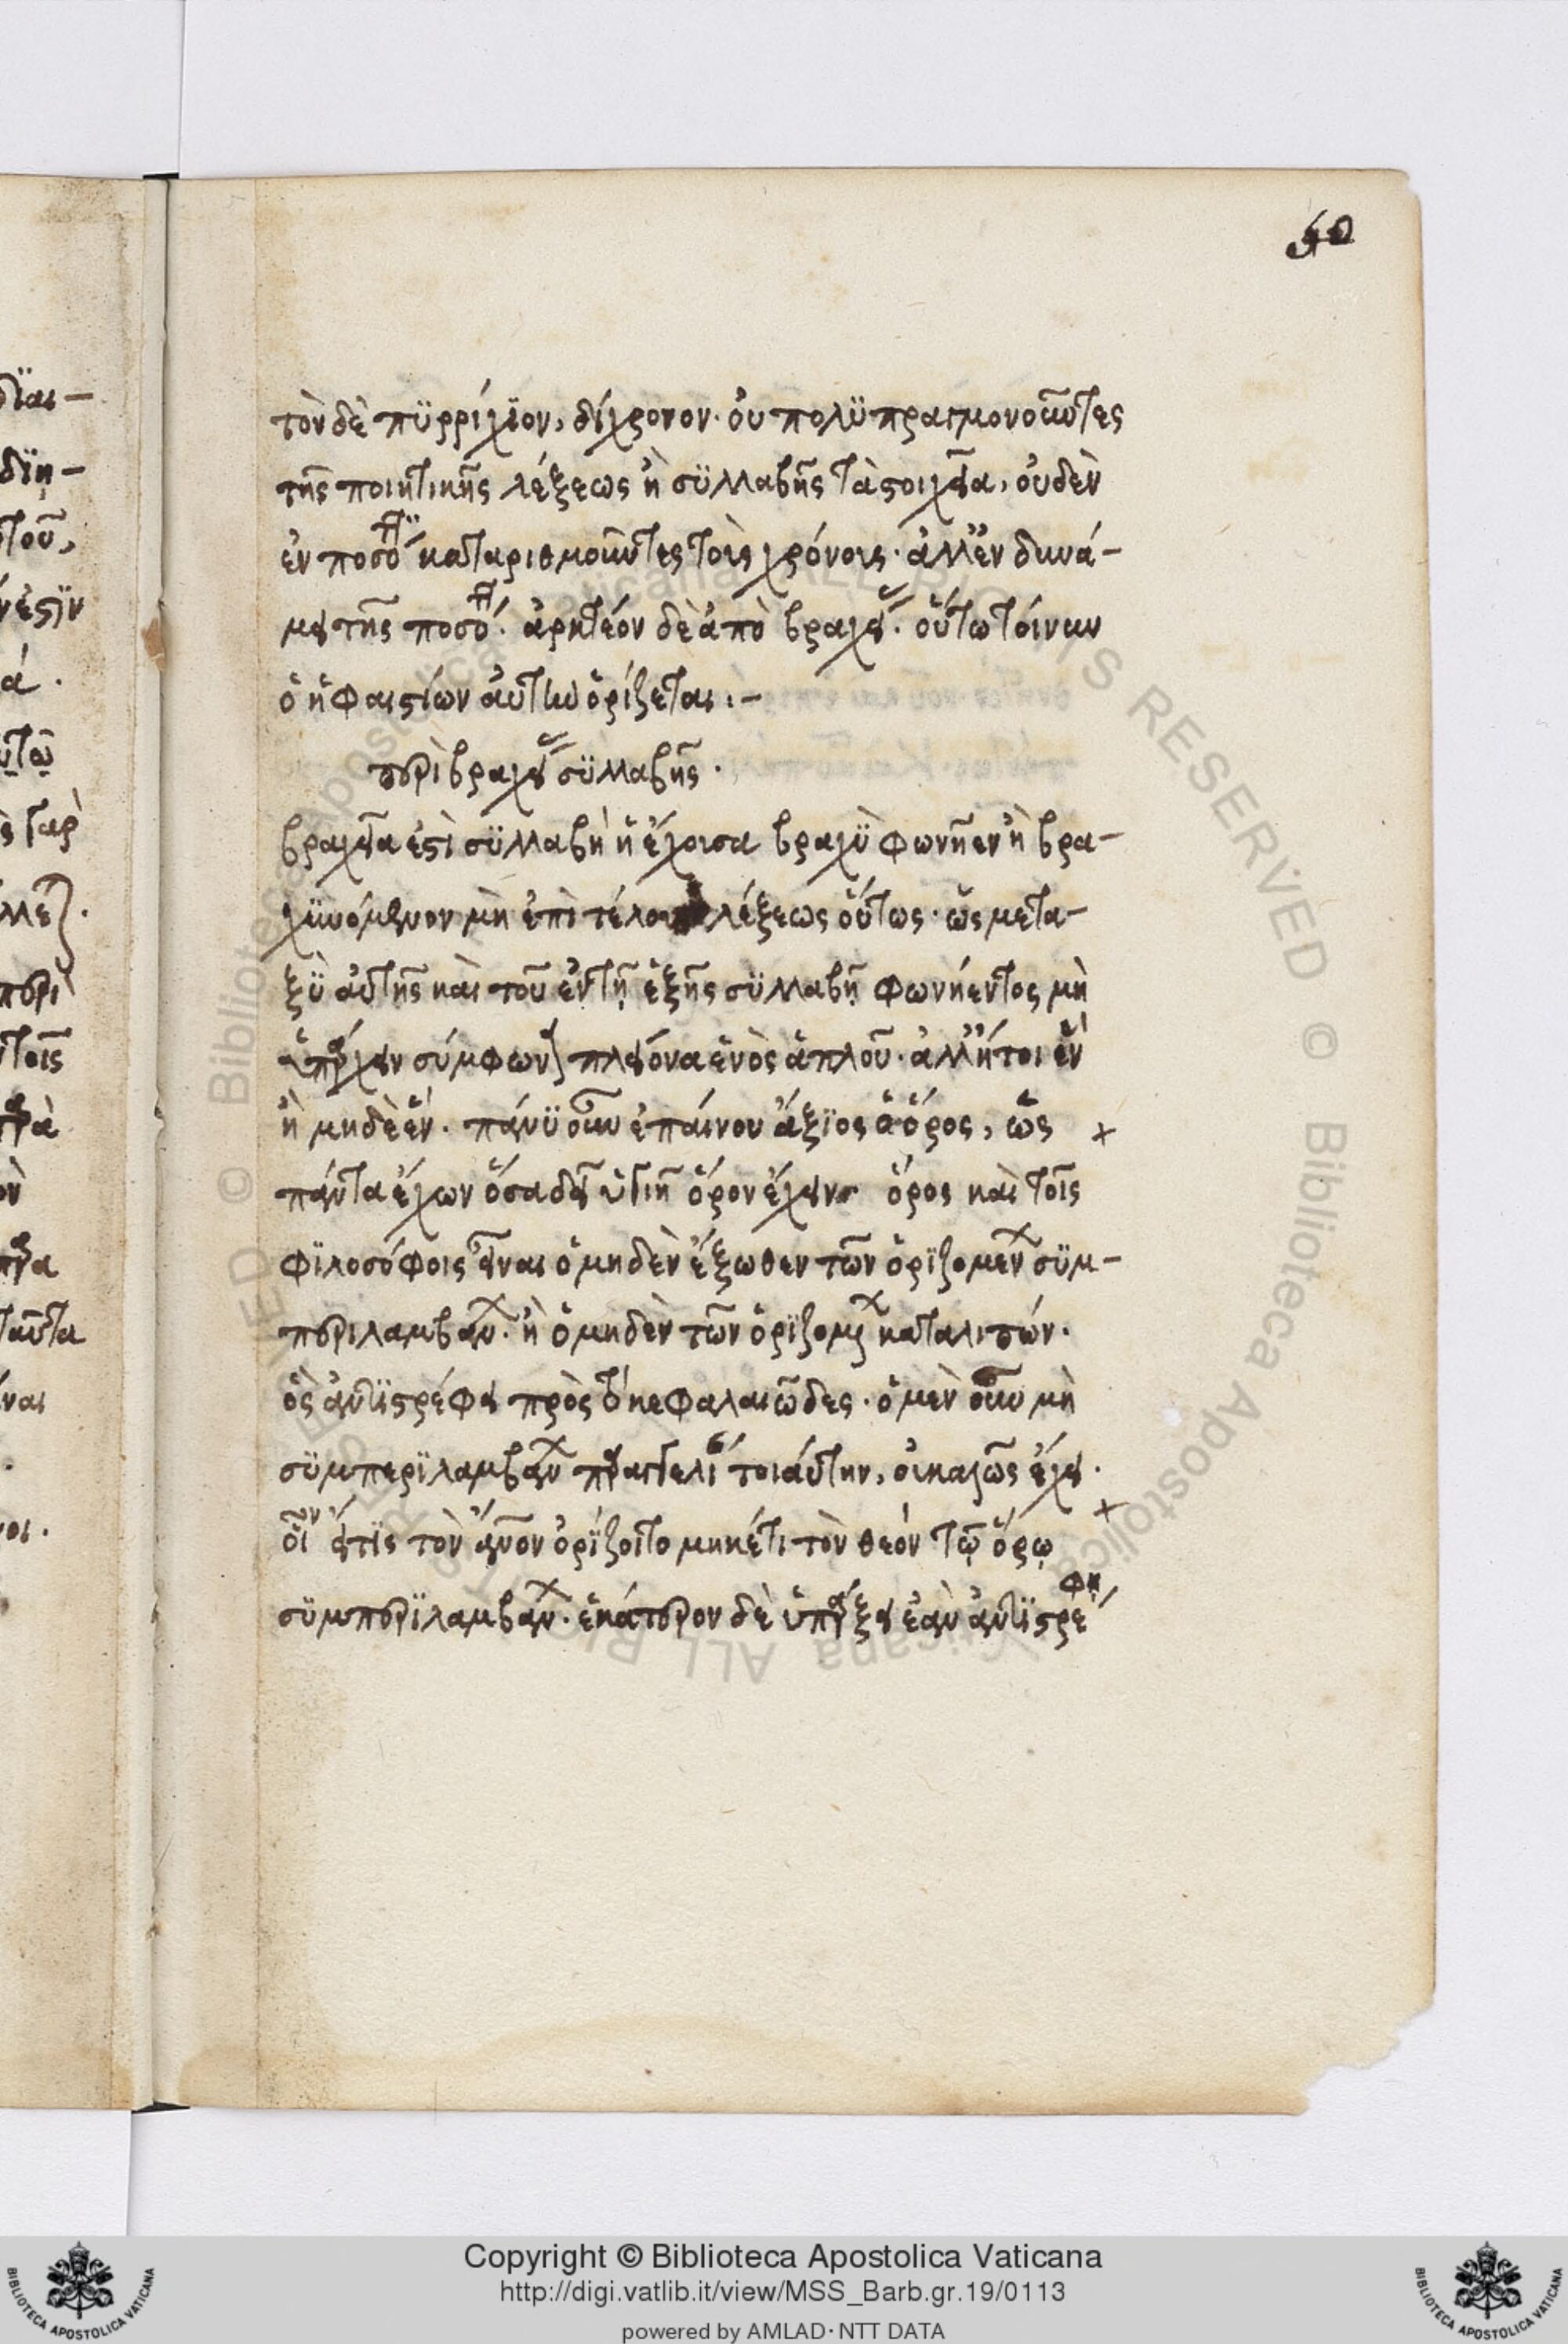 50
τὸν δὲ πϋρρίχϊον, δίχρονον· οὐ πολϋπραγμονοῦντες
τῆς ποιητικῆς λέξεως ἢ σϋλλαβῆς τὰ στοιχεῖα, οὐδὲν
ἐν ποσότητι καταριθμοῦντες τοῖς χρόνοις· ἀλλ' ἐν δυνά-
μει τῆς ποσότητος· ἀρκτέον δὲ ἀπὸ βραχείας· οὕτω τοίνυν
ὁ ἡφαιστίων αὐτὴν ὁρίζεται:-
περὶ βραχείας σϋλλαβῆς·
βραχεῖα ἐστὶ σϋλλαβὴ ἡ ἔχουσα βραχῢ φωνῆεν ἢ βρα-
χϋνόμενον μὴ ἐπὶ τέλους λέξεως οὕτως· ὡς μετα-
ξῢ αὐτῆς καὶ τοῦ ἐν τῇ ἑξῆς σϋλλαβῇ φωνήεντος μὴ
ὑπάρχειν σύμφωνα πλείονα ἑνὸς ἁπλοῦ· ἀλλ' ἤτοι ἓν
ἢ μηδὲ ἕν· πάνϋ οὖν ἐπαίνου ἄξϊος ὁ ὅρος, ὡς
πάντα ἔχων ὅσα δεῖ ὑγιῆ ὅρον ἔχειν ὅρος καὶ τοῖς
φϊλοσόφοις εἶναι ὁ μηδὲν ἔξωθεν τῶν ὁρϊζομένων σϋμ-
περιλαμβάνων· ἢ ὁ μηδὲν τῶν ὁρϊζομένων καταλιπών·
ὃς ἀντϊστρέφει πρὸς τὸ κεφαλαιῶδες· ὁ μὲν οὖν μὴ
σϋμπερϊλαμβάνων παραγγελίαν τοιαύτην, οὐ καλῶς ἔχει·
οἷον εἴ τϊς τὸν ἄνθρωπον ὁρίζοιτο μηκέτι τὸν θεὸν τῷ ὅρῳ
σϋμπερϊλαμβάνων· ἑκάτερον δὲ ὑπάρξει ἐὰν ἀντϊστρέφῃ
Copyright © Biblioteca Apostolica Vaticana
http://digi.vatlib.it/view/MSS_Barb.gr.19/0113
powered by AMLAD·NTT DATA